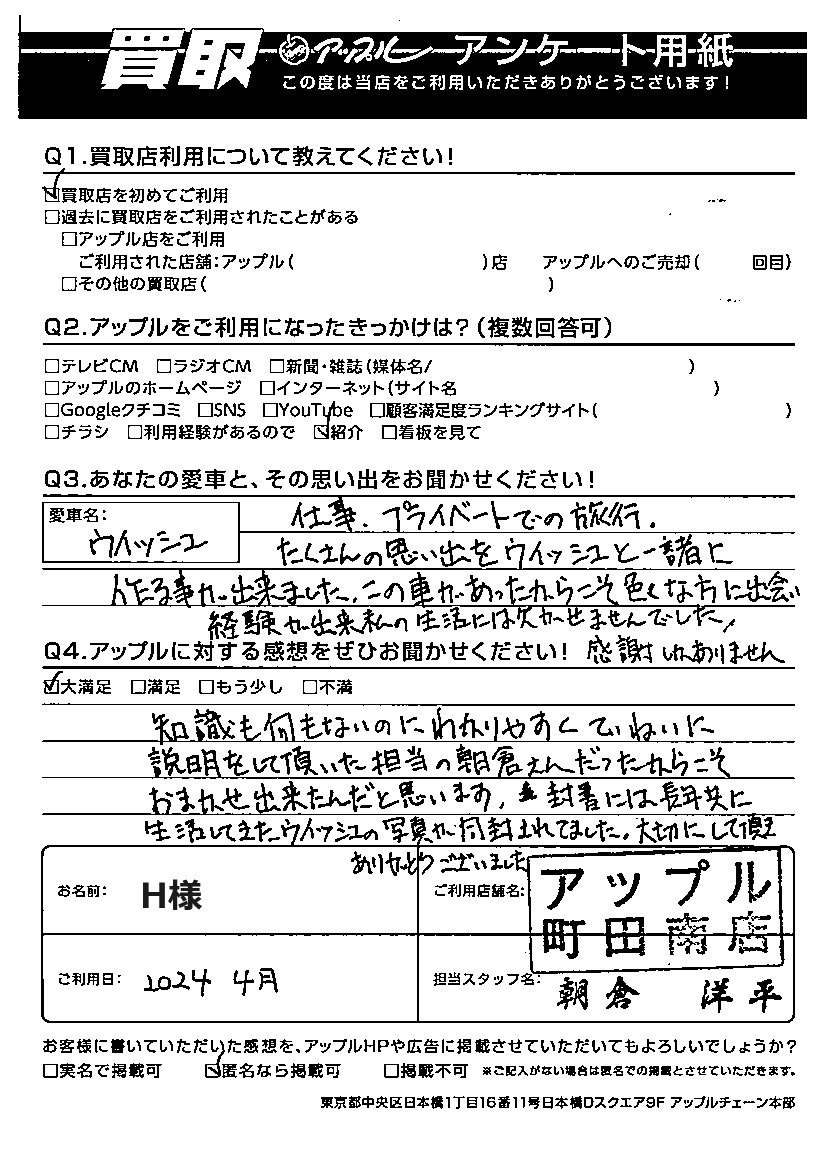 買取 アップル アンケート用紙
この度は当店をご利用いただきありがとうございます!
Q1.買取店利用について教えてください!
☑買取店を初めてご利用
□過去に買取店をご利用されたことがある
□アップル店をご利用
ご利用された店舗:アップル( )店 アップルへのご売却( 回目)
□その他の買取店( )
Q2.アップルをご利用になったきっかけは?(複数回答可)
□テレビCM □ラジオCM □新聞・雑誌(媒体名/ )
□アップルのホームページ □インターネット(サイト名 )
□Googleクチコミ □SNS □YouTube □顧客満足度ランキングサイト( )
□チラシ □利用経験があるので ☑紹介 □看板を見て
Q3.あなたの愛車と、その思い出をお聞かせください!
愛車名: ウイッシュ
仕事、プライベートでの旅行。
たくさんの思い出をウイッシュと一諸に
作る事が出来ました。この車があったからこそ色々な方に出会い
経験が出来私の生活には欠かせませんでした。
Q4.アップルに対する感想をぜひお聞かせください! 感謝しかありません
☑大満足 □満足 □もう少し □不満
知識も何もないのにわかりやすくていねいに
説明をして頂いた担当の朝倉さんだったからこそ
おまかせ出来たんだと思います。封書には長年共に
生活してきたウイッシュの写真が同封されてました。大切にして頂き
ありがとうございました
お名前: H様
ご利用店舗名: アップル
町田南店
ご利用日: 2024 4月
担当スタッフ名: 朝倉 洋平
お客様に書いていただいた感想を、アップルHPや広告に掲載させていただいてもよろしいでしょうか?
□実名で掲載可 ☑匿名なら掲載可 □掲載不可 ※ご記入がない場合は匿名での掲載とさせていただきます。
東京都中央区日本橋1丁目16番11号日本橋Dスクエア9F アップルチェーン本部